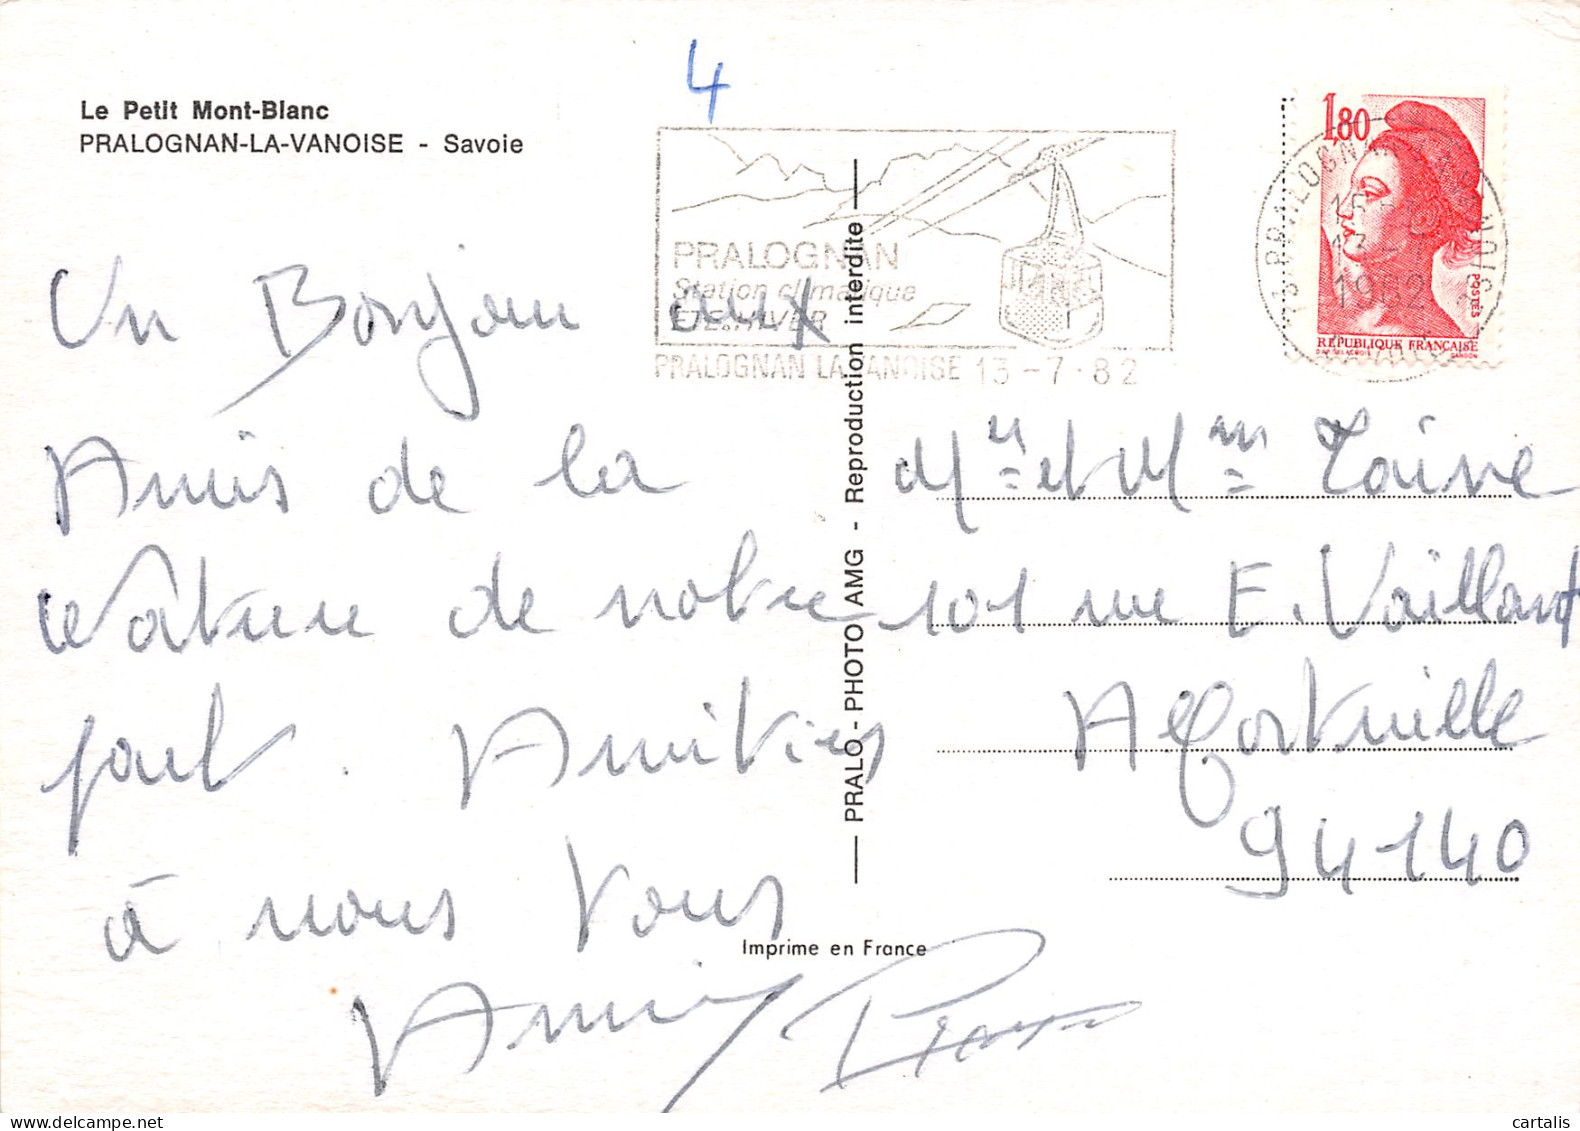 4
Le Petit Mont-Blanc
PRALOGNAN-LA-VANOISE - Savoie
PRALOGNAN
Station climatique
ETE-HIVER
PRALOGNAN LA VANOISE 13-7-82
1,80
1982
POSTES
REPUBLIQUE FRANÇAISE
Un Bonjour aux
Amis de la
Nature de notre
part. Amitiés
à vous tous
PRALO - PHOTO AMG - Reproduction interdite
Mr et Mme
101 rue E. Vaillant
Alfortville
94140
Imprime en France
cartalis
delcampe.net